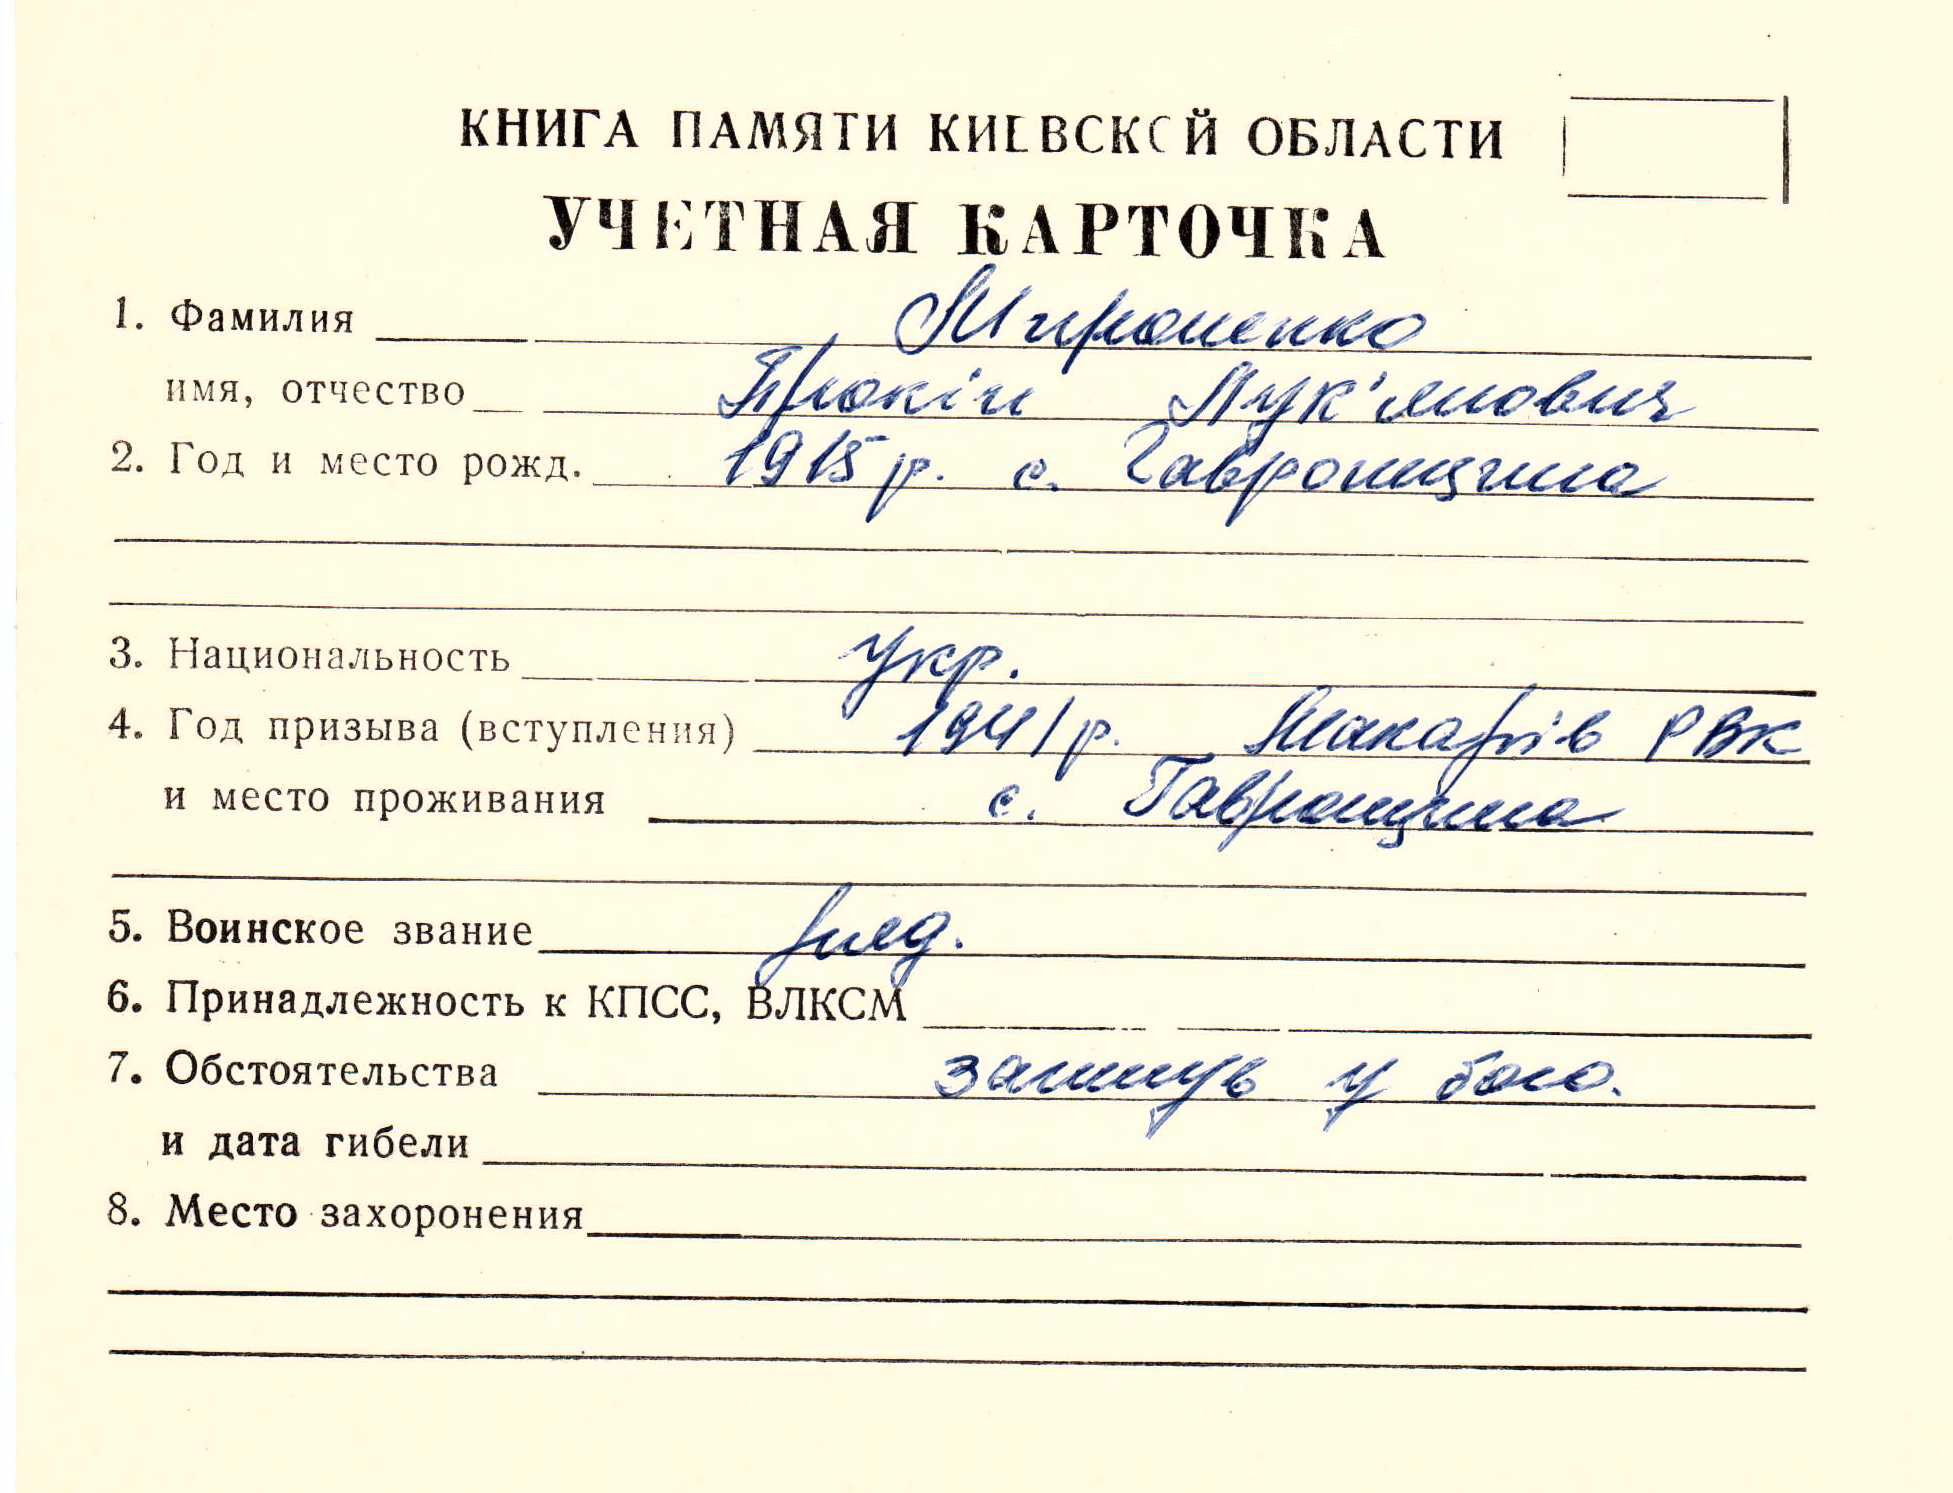 КНИГА ПАМЯТИ КИЕВСКОЙ ОБЛАСТИ
УЧЕТНАЯ КАРТОЧКА
1. Фамилия Мироненко
имя, отчество Прокіп Лук'янович
2. Год и место рожд. 1915 р. с. Гавронщина
3. Национальность укр.
4. Год призыва (вступления) 1941 р. Макарів РВК
и место проживания с. Гавронщина
5. Воинское звание ряд.
6. Принадлежность к КПСС, ВЛКСМ
7. Обстоятельства загинув у бою.
и дата гибели
8. Место захоронения